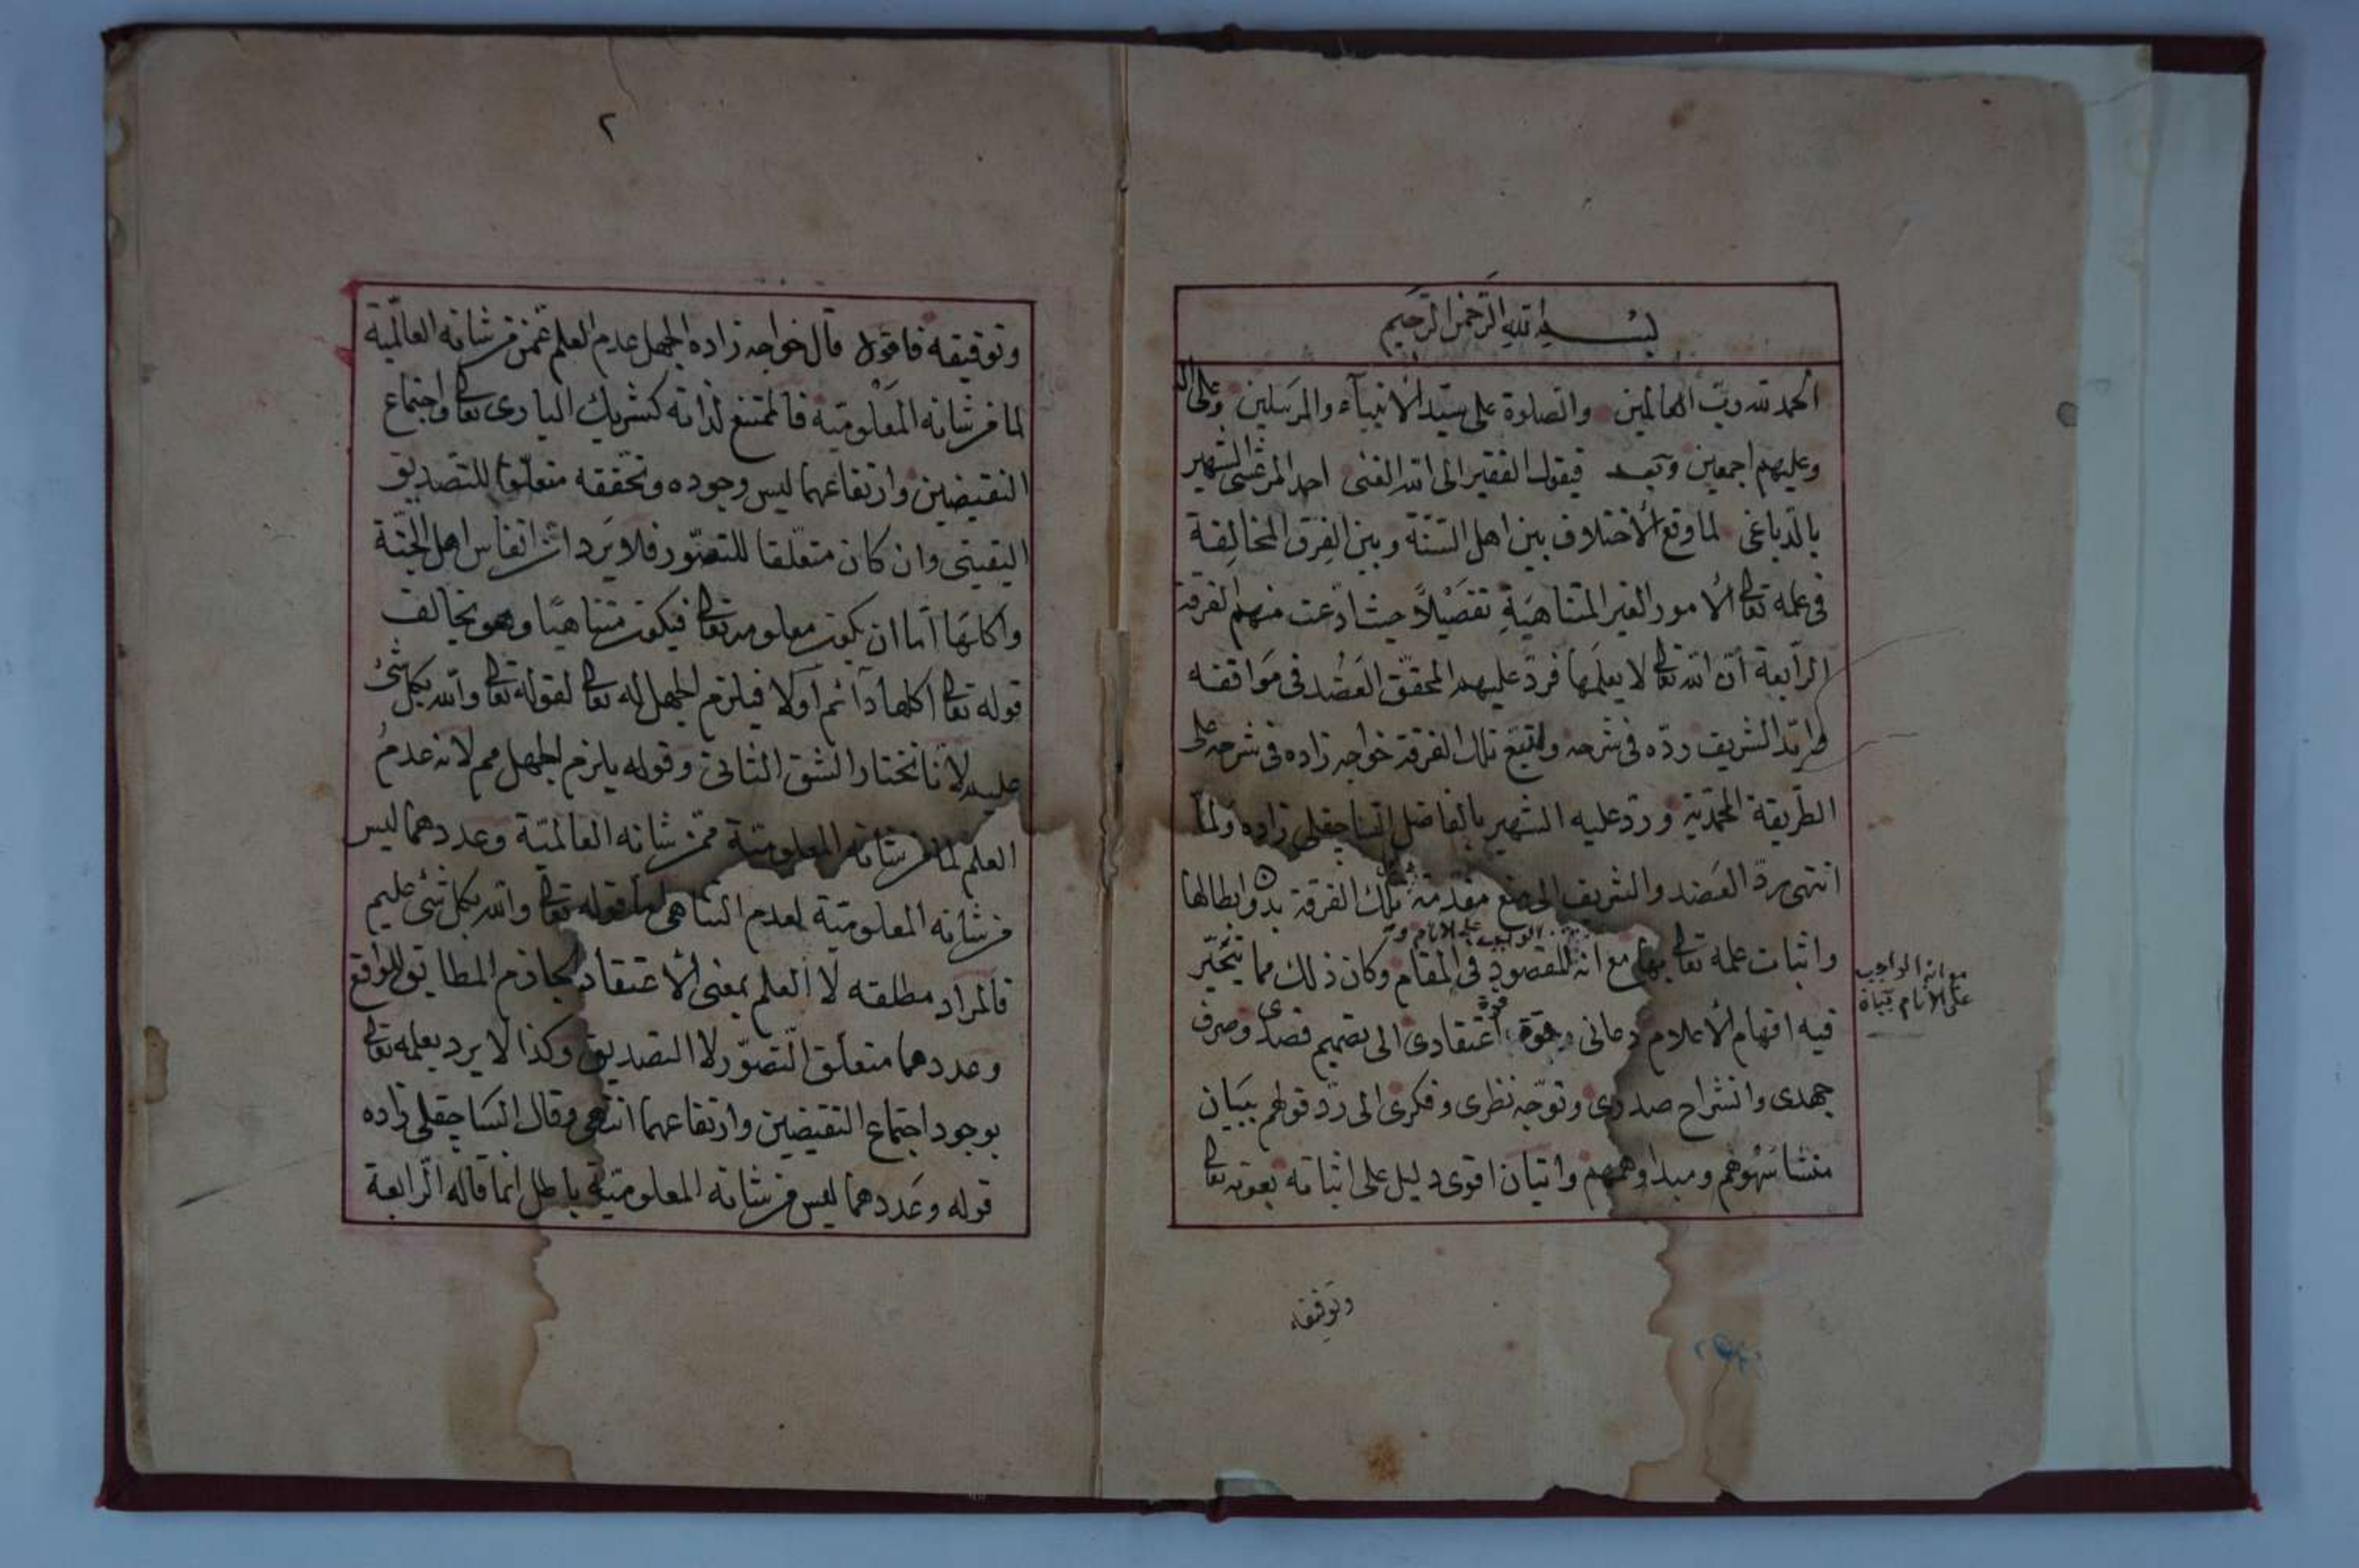 بسم الله الرحمن الرحيم
الحمد لله رب العالمين والصلوة على سيد الأنبياء والمرسلين وعلى آله
وعليهم اجمعين وبعد فيقول الفقير الى الله الغنى احمد المرعشى الشهير
بالدباغى لما وقع الأختلاف بين اهل السنة وبين الفرق المخالفة
فى علمه تعالى الأمور الغير المتناهية تفصيلاً حيث ادّعت منهم الفرقة
الرابعة أن الله تعالى لا يعلمها فردّ عليهم المحقق العضد فى مواقفه
وايّد الشريف ردّه فى شرحه واتبع تلك الفرقة خواجه زاده فى شرحه على
الطريقة المحمدية وردّ عليه الشهير بالفاضل الساجقلى زاده ولما
انتهى ردّ العضد والشريف الى منع مقدمة تلك الفرقة بدون ابطالها
واثبات علمه تعالى بها مع انه المقصود فى المقام وكان ذلك مما يتحيّر
الواجب على الانام و
مع انه الواجب
على الانام
فيه افهام الأعلام دعانى قوة اعتقادى الى تصميم قصدى وصرف
جهدى وانشراح صدرى وتوجّه نظرى وفكرى الى ردّ قولهم ببيان
منشا سهوهم ومبدا وهمهم واتيان اقوى دليل على اثباته بعونه تعالى
وتوفيقه
٢
وتوفيقه فاقول قال خواجه زاده الجهل عدم العلم عمن من شانه العالمية
لما من شانه المعلومية فالممتنع لذاته كشريك البارى تعالى واجتماع
النقيضين وارتفاعهما ليس وجوده وتحققه متعلقا للتصديق
اليقينى وان كان متعلقا للتصور فلا يرد ان انفاس اهل الجنّة
واكلها اما ان يكون معلومه تعالى فيكون متناهيا وهو يخالف
قوله تعالى اكلها دآئم اولا فيلزم الجهل له تعالى لقوله تعالى والله بكل شئ
عليم لانا نختار الشق الثانى وقوله يلزم الجهل مم لانه عدم
العلم لما من شانه المعلومية عمن شانه العالمية وعددهما ليس
من شانه المعلومية لعدم التناهى قوله تعالى والله بكل شئ عليم
فالمراد مطلقه لا العلم بمعنى الأعتقاد الجازم المطابق للواقع
وعددهما متعلق التصوّر لا التصديق وكذا لا يرد بعلمه تعالى
بوجود اجتماع النقيضين وارتفاعهما انتهى وقال الساجقلى زاده
قوله وعددهما ليس من شانه المعلومية باطل انما قاله الرابعة